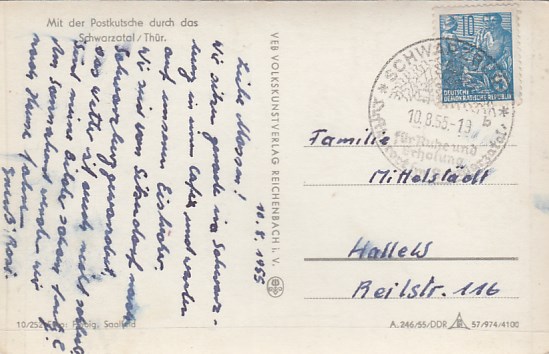 Mit der Postkutsche durch das
Schwarzatal/Thür.
10.8.1955
Liebe Mama!
Wir sitzen gerade in Schwarz-
burg in einem Cafe und warten
auf unseren Eisbecher.
Wir sind von Sitzendorf nach
Schwarzburg gewandert.
das Wetter ist auch nicht schlecht
Sind meine Bilder schon fertig?
Am Sonnabend werden wir
nach Hause fahren.
Gruß, Rosi.
10/252 Saalfeld
VEB VOLKSKUNSTVERLAG REICHENBACH i. V.
10
DEUTSCHE
DEMOKRATISCHE REPUBLIK
10.8.55-19
b
für Ruhe und
Erholung
Familie
Mittelstädt
Halle W
Reilstr. 116
A 246/55/DDR 57/974/4100